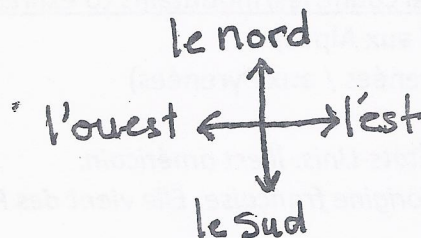 le nord
l'ouest l'est
le sud